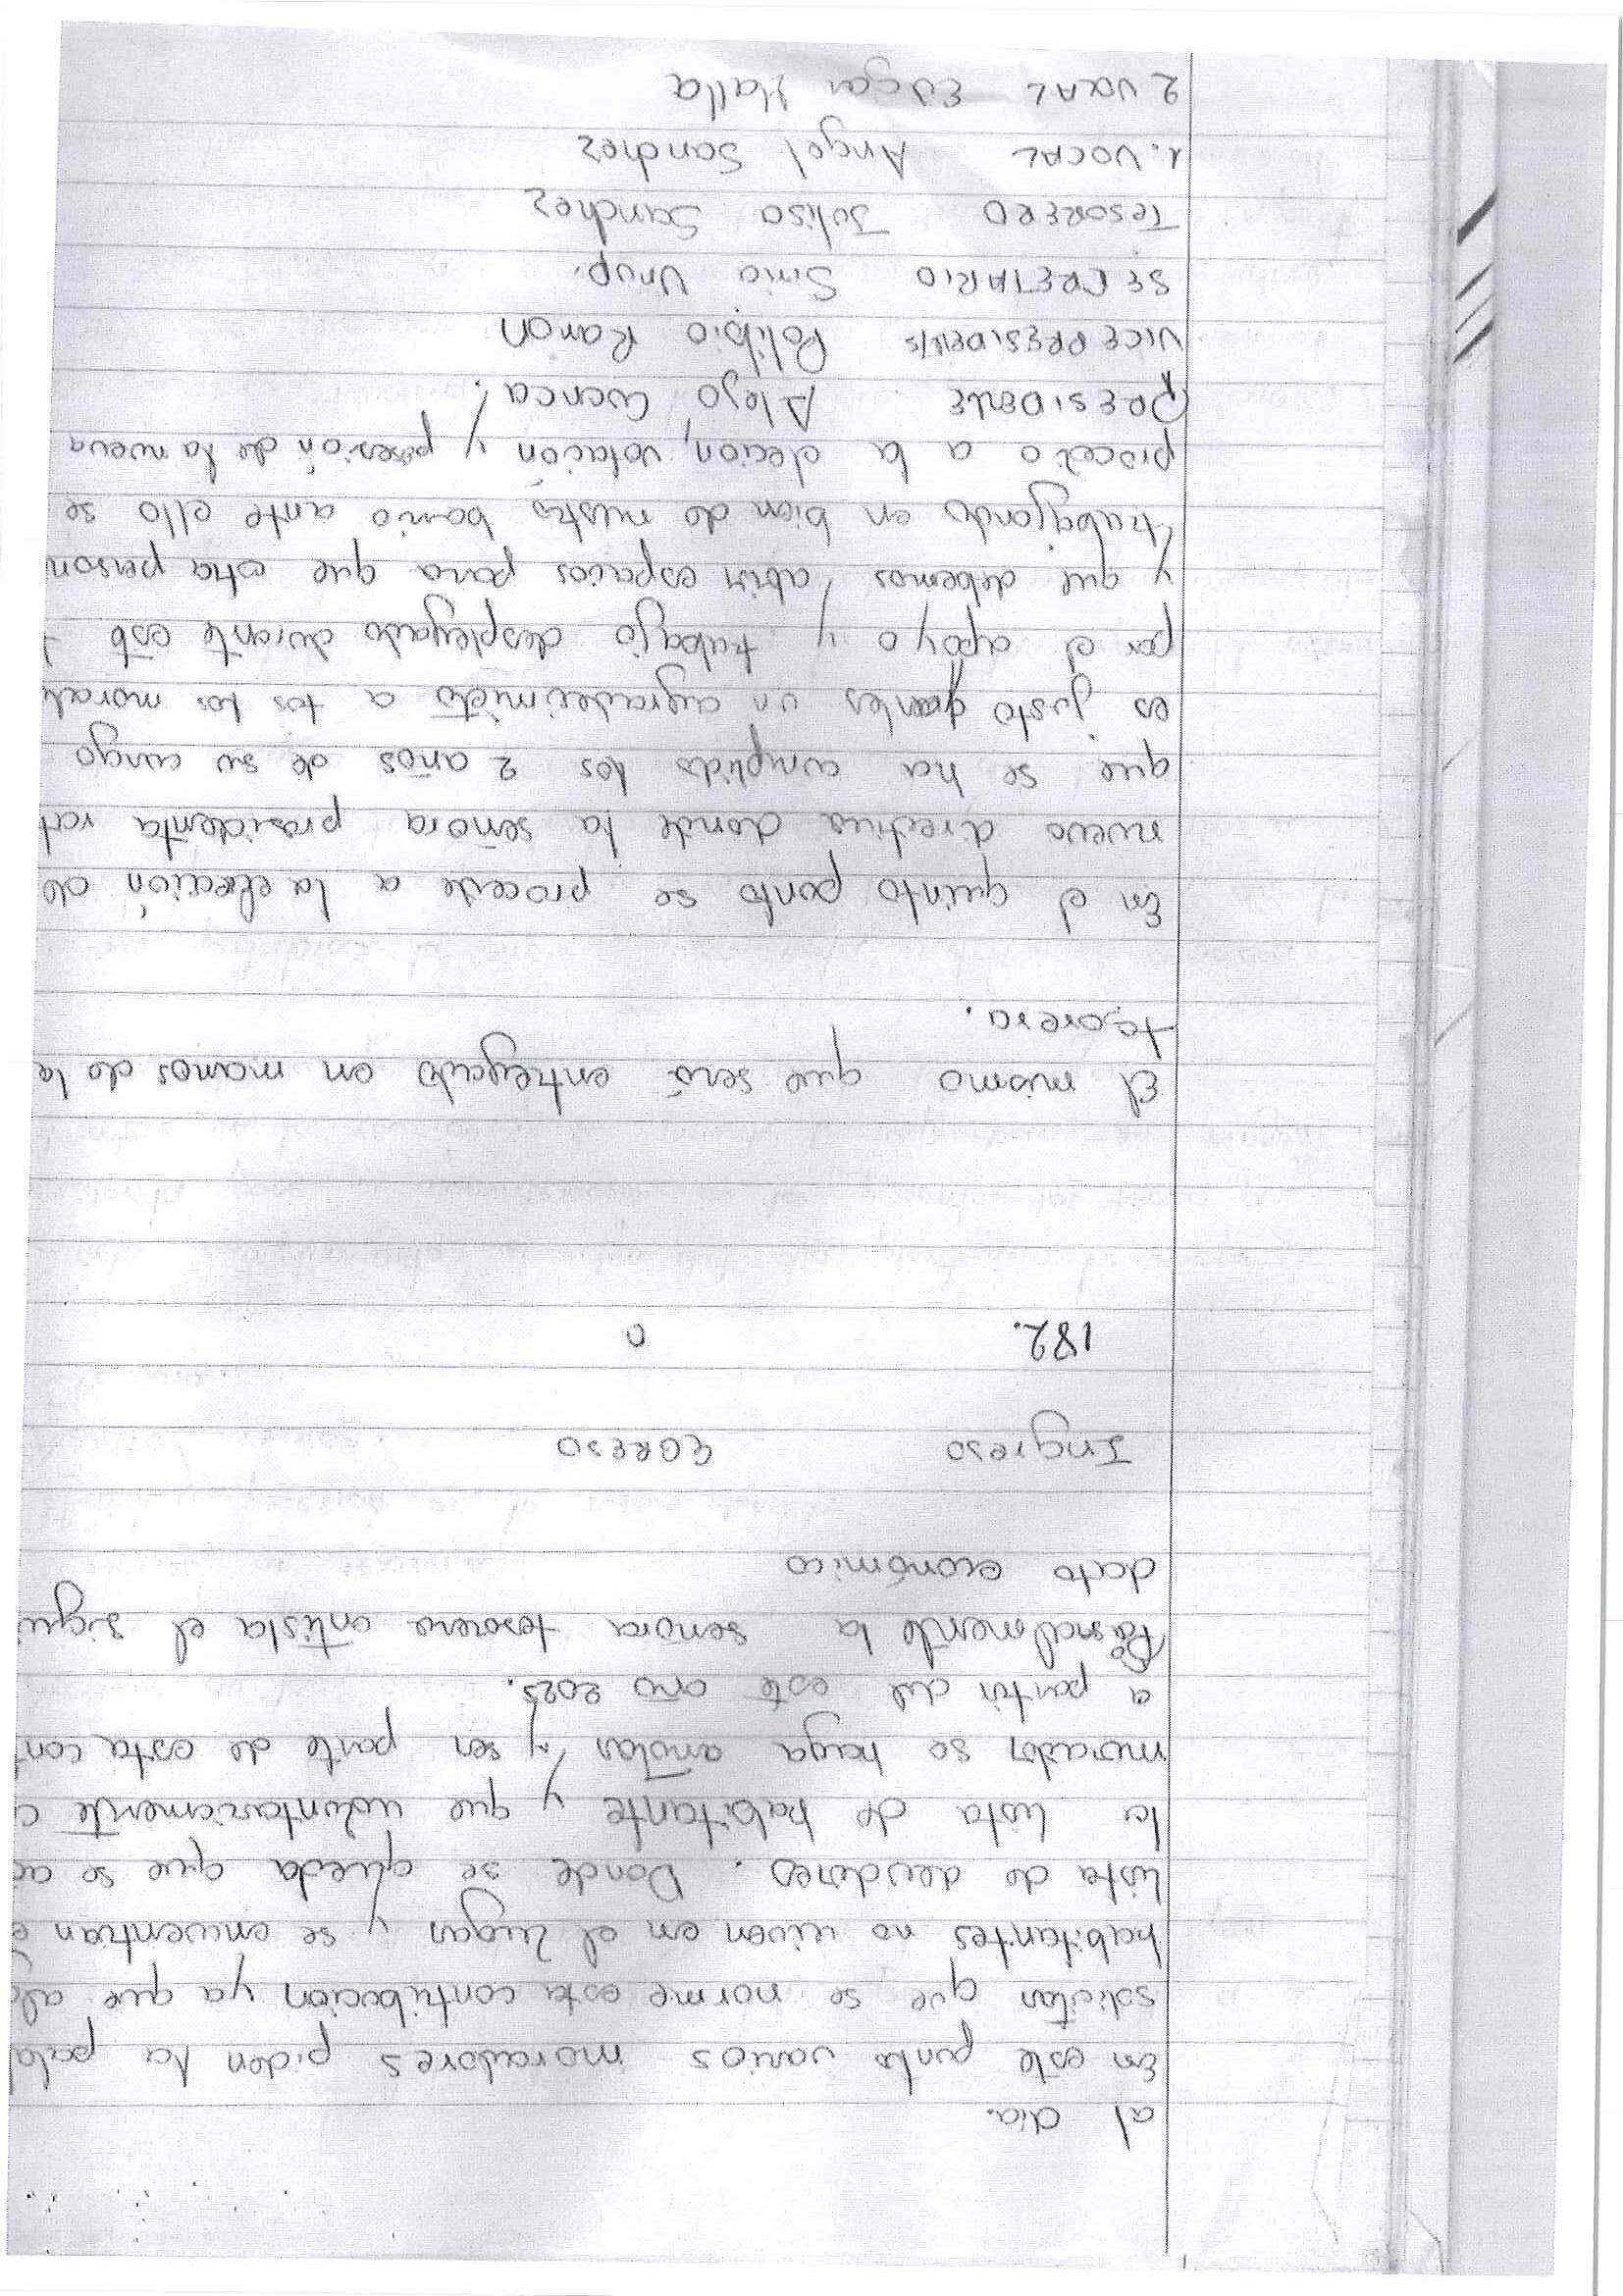 al dia.
En este punto varios moradores piden la pala
solicitan que se norme esta contribución ya que alg
habitantes no viven en el lugar y se encuentran e
lista de deudores. Donde se queda que se ac
la lista de habitante y que voluntariamente c
morador se haga anotar y ser parte de esta con
a partir del este año 2025.
la señora tesorera el sigui
dato económico
Ingreso EGRESO
182. 0
El mismo que será entregado en manos de la
tesorera.
En el quinto punto se procede a la elección de
nueva directiva donde la señora presidenta
que se ha cumplido los 2 años de su cargo
es justo un agradecimieto a tos los morad
por el apoyo y trabajo desplegado durante esto
y que debemos abrir espacios para que otra person
trabajando en bien de nuestro barrio ante ello se
procedio a la elecion, votación y posesión de la nueva
PRESIDENTE Alejo Cuenca.
VICE PRESIDENTE Polibio Ramon
SECRETARIO Sirio
TESORERO Julisa Sanchez
1. VOCAL Angel Sanchez
2 VOCAL Edgar Malla